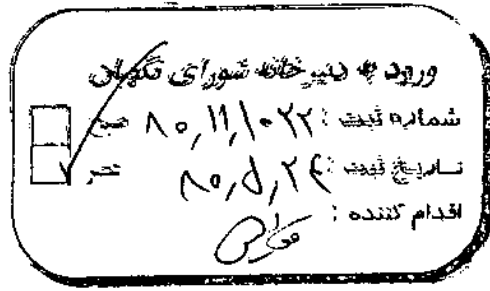 ورود به دبیرخانه شورای نگهبان
شماره ثبت : ۸۰,۱۱,۱۰۲۲ صبح
تاریخ ثبت : ۸۰,۵,۲۴ عصر
اقدام کننده :